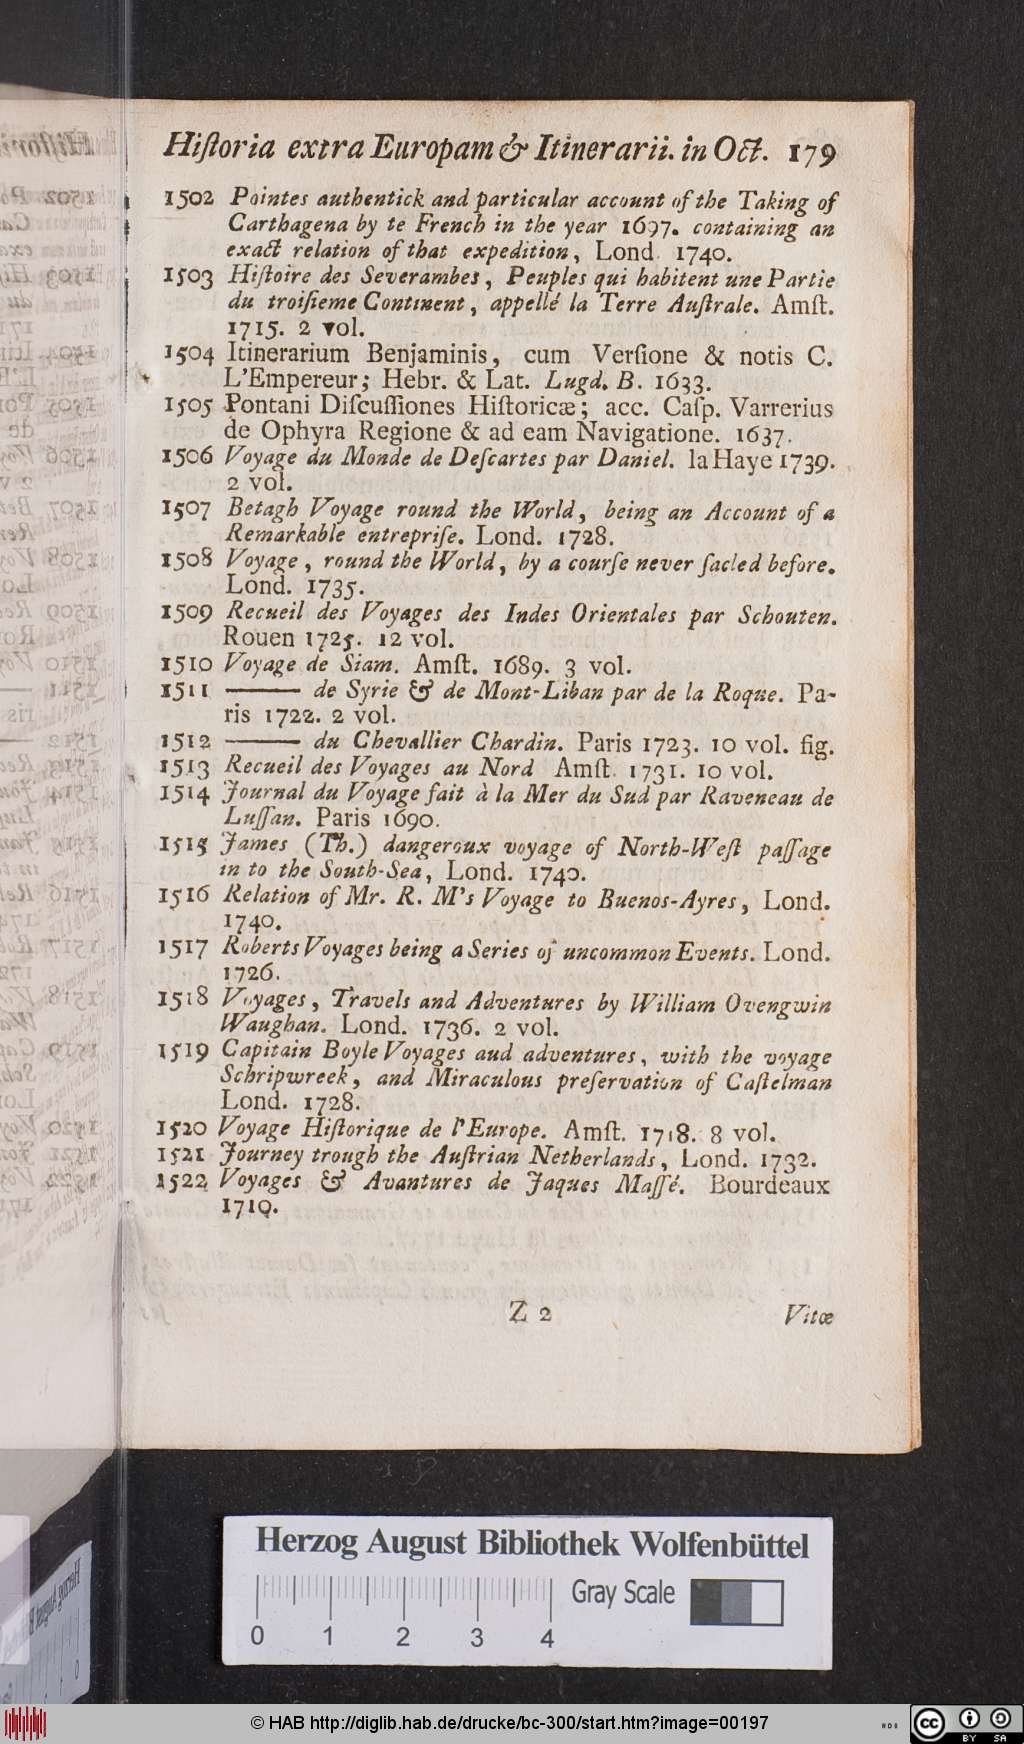 Hiſtoria extra Europam & Itinerarii. in Oct. 179
1502 Pointes authentick and particular account of the Taking of
Carthagena by te French in the year 1697. containing an
exact relation of that expedition, Lond. 1740.
1503 Hiſtoire des Severambes, Peuples qui habitent une Partie
du troiſieme Continent, appellé la Terre Auſtrale. Amſt.
1715. 2 vol.
1504 Itinerarium Benjaminis, cum Verſione & notis C.
L'Empereur; Hebr. & Lat. Lugd. B. 1633.
1505 Pontani Diſcuſſiones Hiſtoricæ; acc. Caſp. Varrerius
de Ophyra Regione & ad eam Navigatione. 1637.
1506 Voyage du Monde de Deſcartes par Daniel. la Haye 1739.
2 vol.
1507 Betagh Voyage round the World, being an Account of a
Remarkable entrepriſe. Lond. 1728.
1508 Voyage, round the World, by a courſe never ſacled before.
Lond. 1735.
1509 Recueil des Voyages des Indes Orientales par Schouten.
Rouen 1725. 12 vol.
1510 Voyage de Siam. Amſt. 1689. 3 vol.
1511 ——— de Syrie & de Mont-Liban par de la Roque. Pa-
ris 1722. 2 vol.
1512 ——— du Chevallier Chardin. Paris 1723. 10 vol. fig.
1513 Recueil des Voyages au Nord Amſt. 1731. 10 vol.
1514 Journal du Voyage fait à la Mer du Sud par Raveneau de
Luſſan. Paris 1690.
1515 James (Th.) dangeroux voyage of North-Weſt paſſage
in to the South-Sea, Lond. 1740.
1516 Relation of Mr. R. M's Voyage to Buenos-Ayres, Lond.
1740.
1517 Roberts Voyages being a Series of uncommon Events. Lond.
1726.
1518 Voyages, Travels and Adventures by William Ovengwin
Waughan. Lond. 1736. 2 vol.
1519 Capitain Boyle Voyages aud adventures, with the voyage
Schripwreek, and Miraculous preſervation of Caſtelman
Lond. 1728.
1520 Voyage Hiſtorique de l'Europe. Amſt. 1718. 8 vol.
1521 Journey trough the Auſtrian Netherlands, Lond. 1732.
1522 Voyages & Avantures de Jaques Maſſé. Bourdeaux
1710.
Z 2 Vitæ
Herzog August Bibliothek Wolfenbüttel
Gray Scale
0 1 2 3 4
© HAB http://diglib.hab.de/drucke/bc-300/start.htm?image=00197
cc BY SA